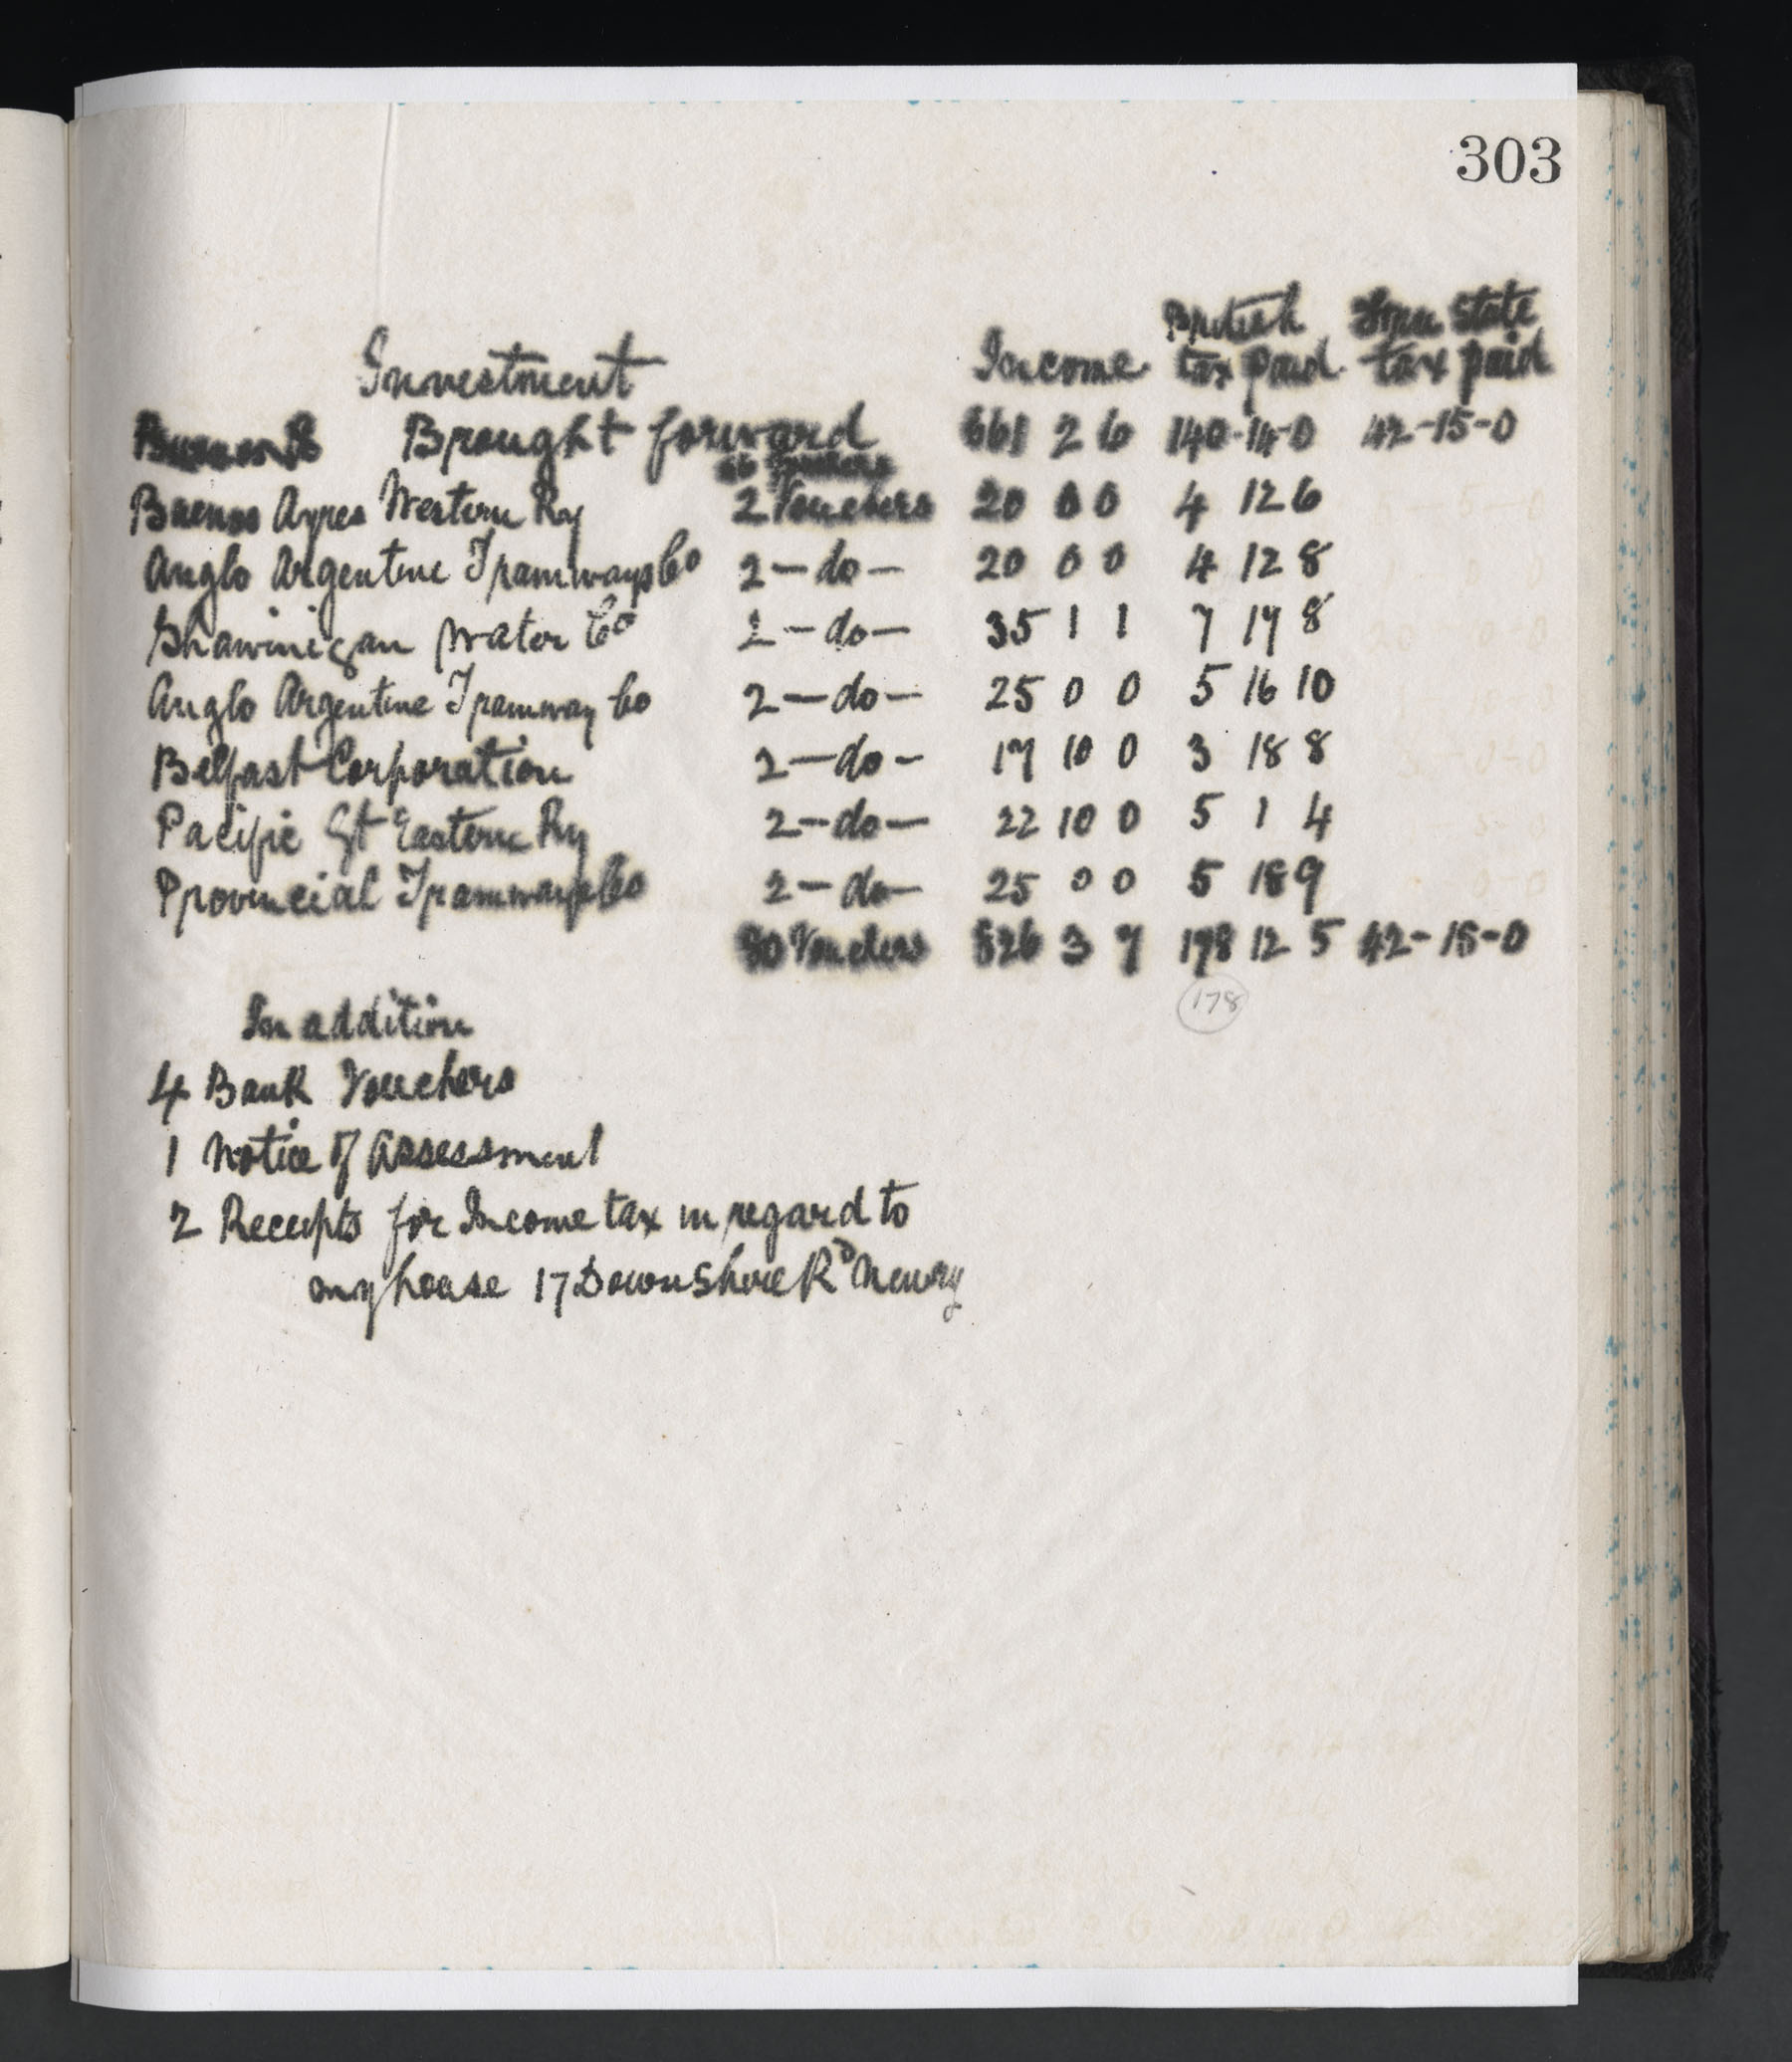 303
British Free State
Investment Income tax paid tax paid
Brought forward 661 2 6 140-14-0 42-15-0
66 Vouchers
Buenos Ayres Western Ry 2 Vouchers 20 0 0 4 12 6
Anglo Argentine Tramways Co 2 - do - 20 0 0 4 12 8
Shawinigan Water Co 2 - do - 35 1 1 7 17 8
Anglo Argentine Tramway Co 2 - do - 25 0 0 5 16 10
Belfast Corporation 2 - do - 17 10 0 3 18 8
Pacific Gt Eastern Ry 2 - do - 22 10 0 5 1 4
Provincial Tramways Co 2 - do - 25 0 0 5 18 9
80 Vouchers 826 3 7 178 12 5 42-15-0
178
In addition
4 Bank Vouchers
1 Notice of Assessment
2 Receipts for Income tax in regard to
my house 17 Downshire Rd Newry